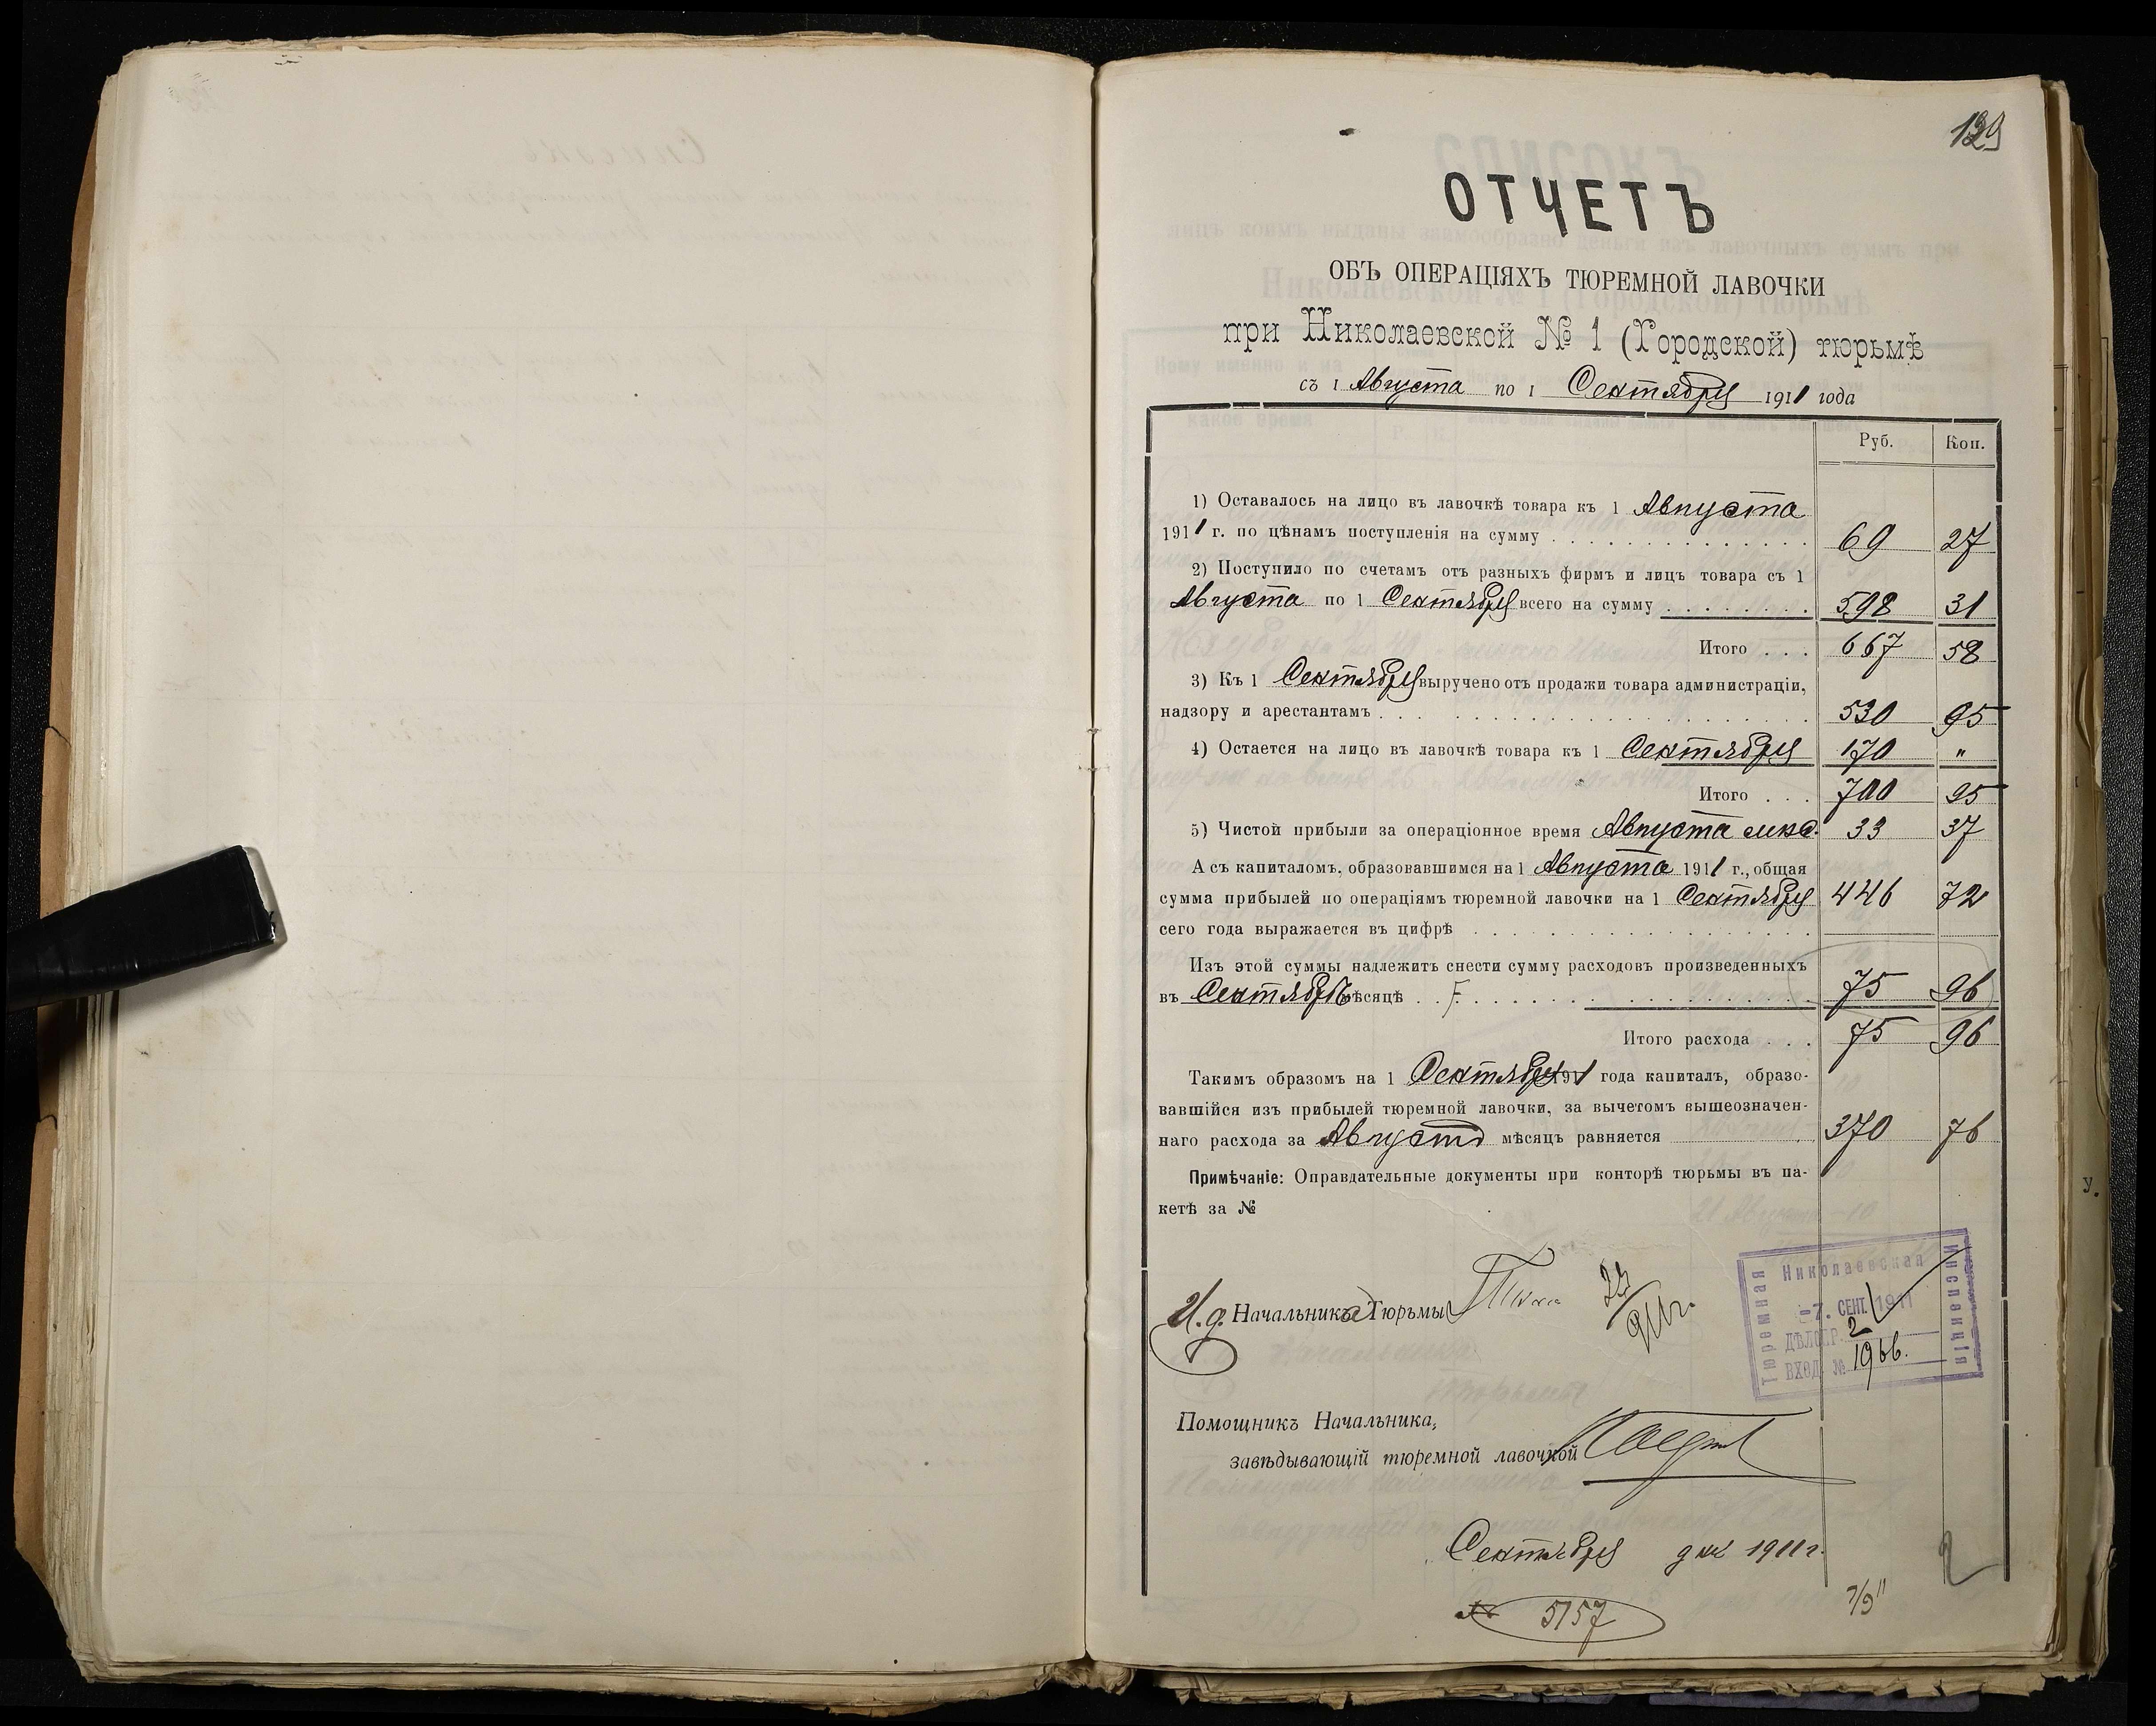 129
ОТЧЕТЪ
ОБЪ ОПЕРАЦІЯХЪ ТЮРЕМНОЙ ЛАВОЧКИ
при Николаевской № 1 (Городской) тюрьмѣ
съ 1 Августа по 1 Сентября 1911 года
Руб. Коп.
1) Оставалось на лицо въ лавочкѣ товара къ 1 Августа
1911 г. по цѣнамъ поступленія на сумму 69 27
2) Поступило по счетамъ отъ разныхъ фирмъ и лицъ товара съ 1
Августа по 1 Сентября всего на сумму 598 31
Итого 667 58
3) Къ 1 Сентября выручено отъ продажи товара администраціи,
надзору и арестантамъ 530 95
4) Остается на лицо въ лавочкѣ товара къ 1 Сентября 170 "
Итого 700 95
5) Чистой прибыли за операціонное время Августа мца. 33 37
А съ капиталомъ, образовавшимся на 1 Августа 1911 г., общая
сумма прибылей по операціямъ тюремной лавочки на 1 Сентября 446 72
сего года выражается въ цифрѣ
Изъ этой суммы надлежитъ снести сумму расходовъ произведенныхъ
въ Сентябрѣ мѣсяцѣ 75 96
Итого расхода 75 96
Такимъ образомъ на 1 Сентября 1911 года капиталъ, образо-
вавшійся изъ прибылей тюремной лавочки, за вычетомъ вышеозначен-
наго расхода за Августъ мѣсяцъ равняется 370 76
Примѣчаніе: Оправдательные документы при конторѣ тюрьмы въ па-
кетѣ за №
И. д. Начальника Тюрьмы
Николаевская
Тюремная
Инспекція
7. СЕНТ. 1911
ДѢЛОПР. 2
ВХОД. № 1966.
Помощникъ Начальника,
завѣдывающій тюремной лавочкой
Сентября дня 1911 г.
№ 5157
7/9 11
2
У.